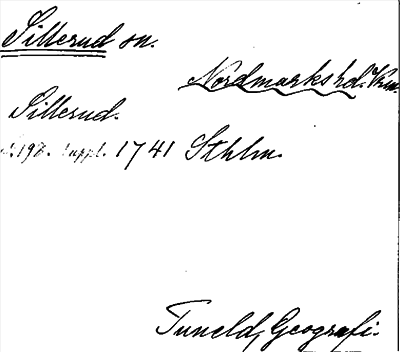 Sillerud sn.
Nordmarks hd. Vrm.
Sillerud.
s. 198. suppl. 1741 Sthlm.
Tuneld, Geografi.